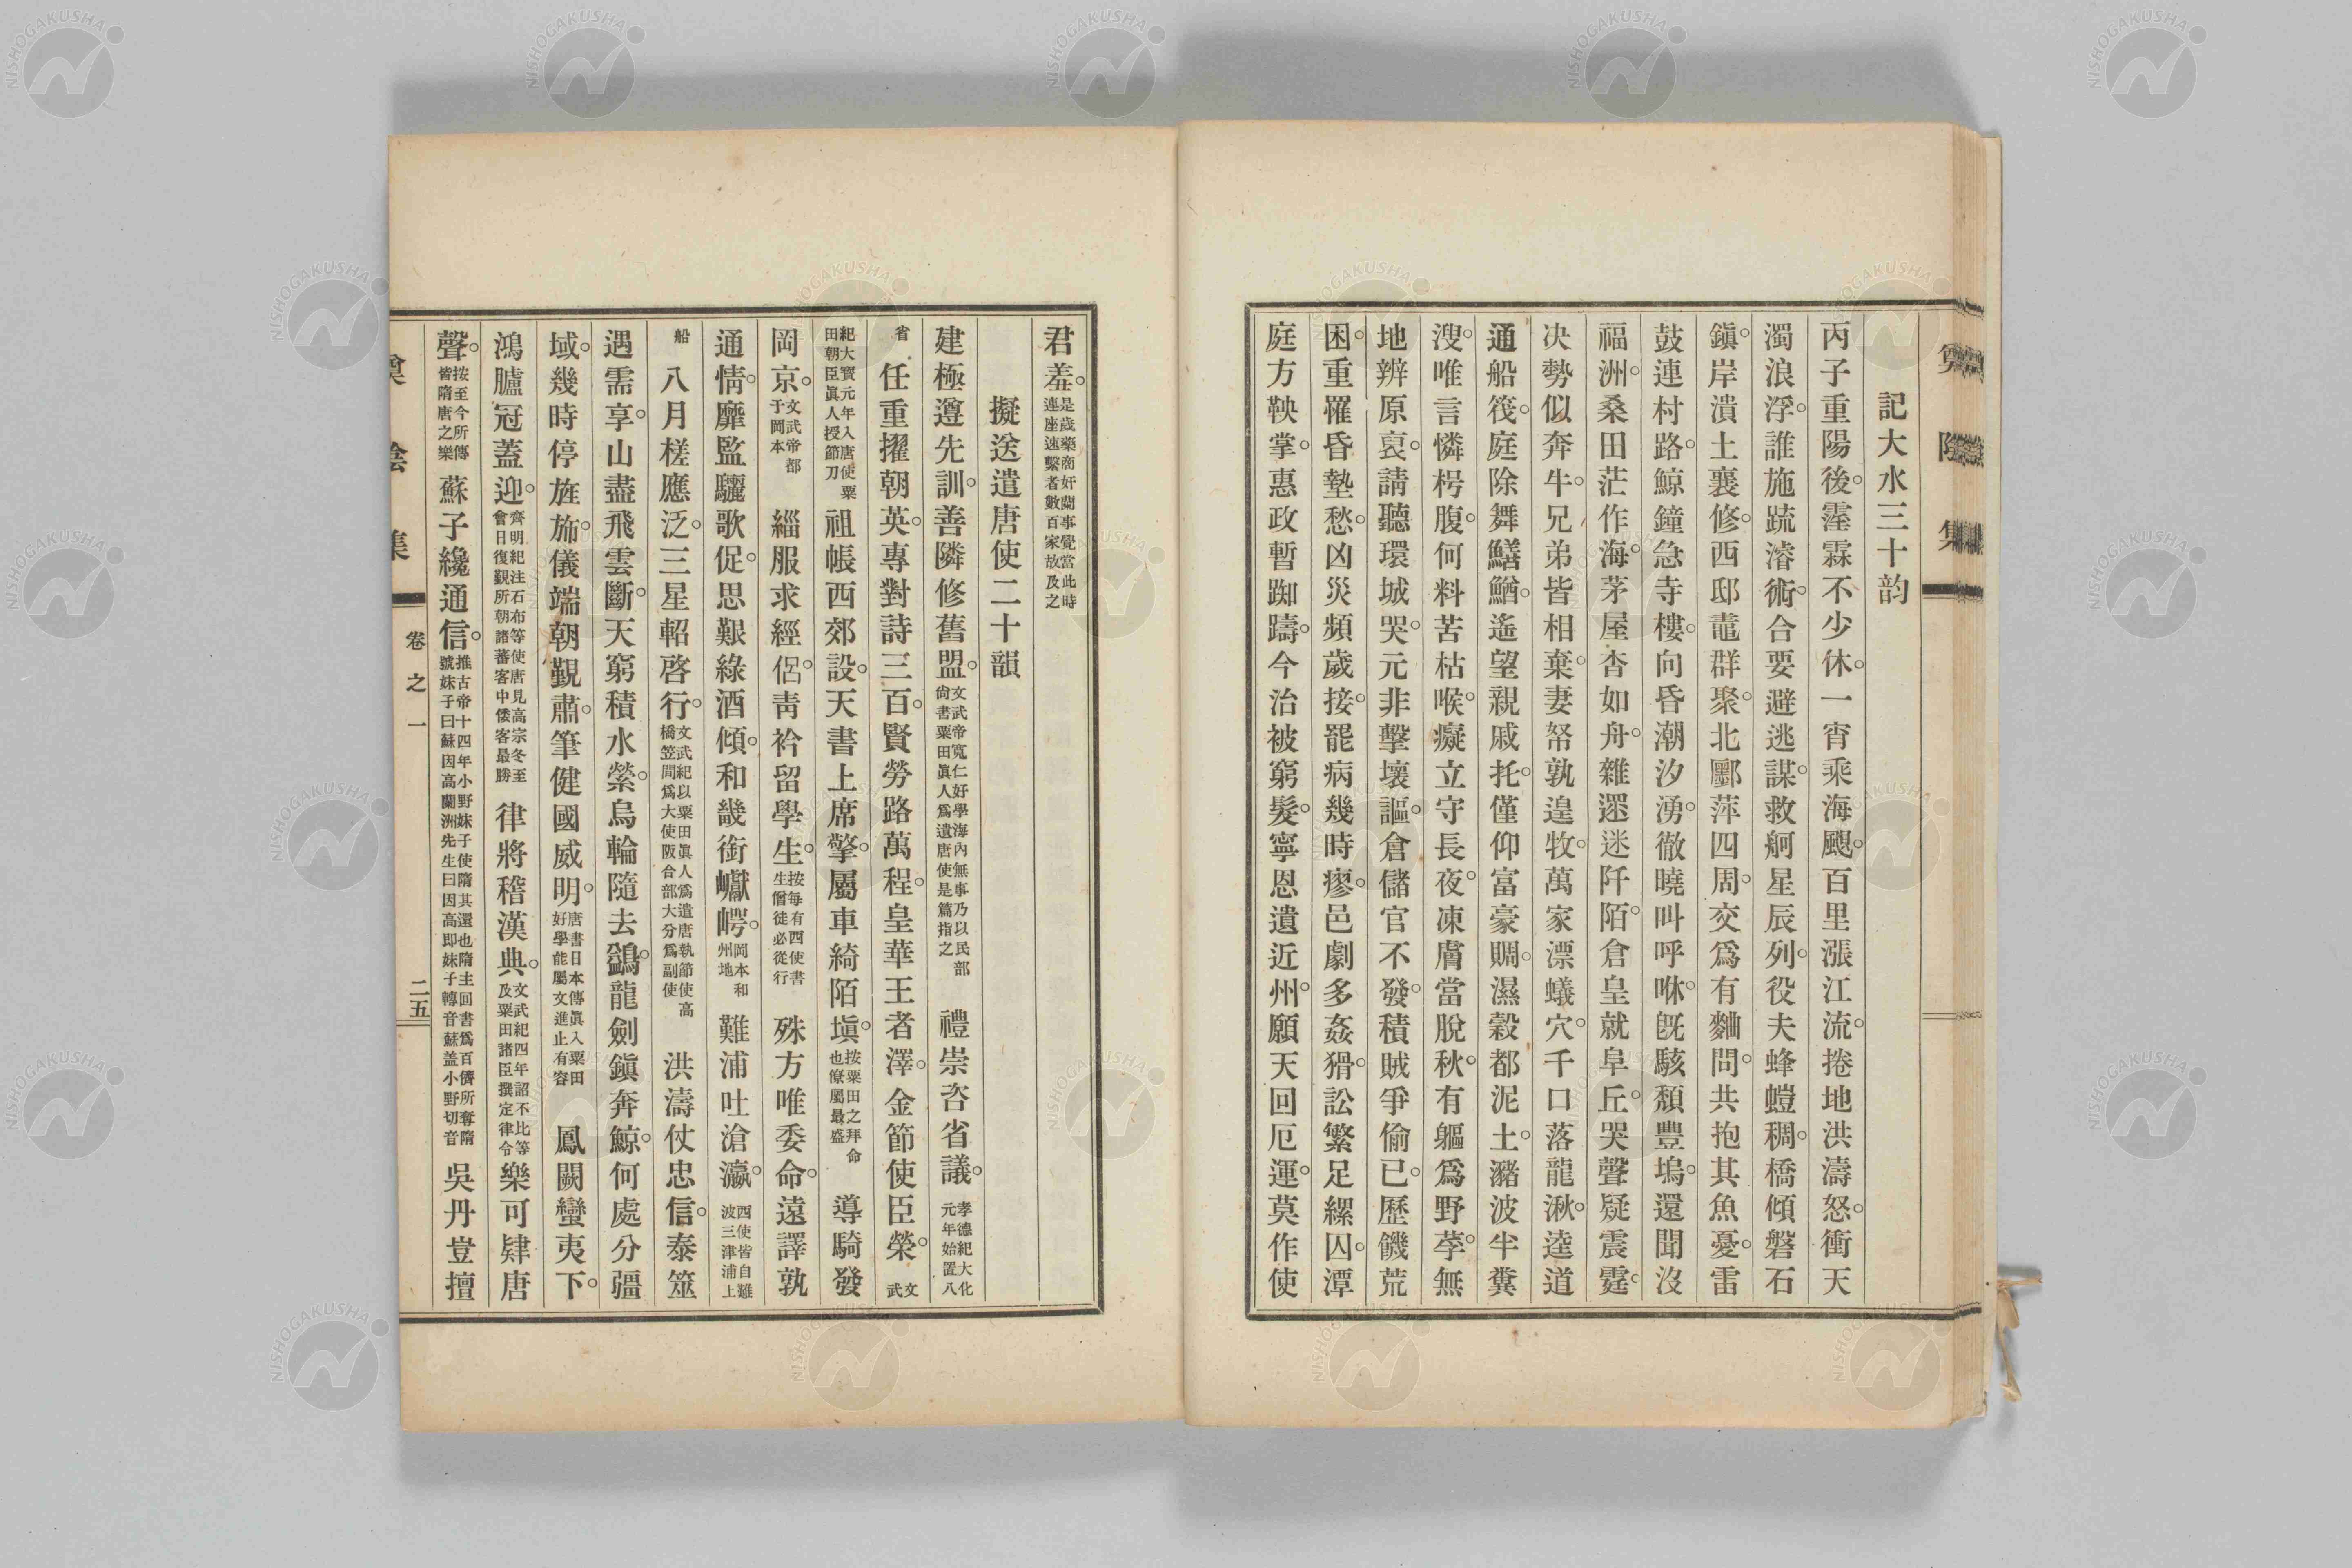 記大水三十韵
丙子重陽後。霪霖不少休。一宵乘海颶。百里漲江流。捲地洪濤怒。衝天
濁浪浮。誰施䟽濬術。合要避逃謀。救舸星辰列。役夫蜂螘稠。橋傾磐石
鎭。岸潰土襄修。西邸鼃群聚。北鄽萍四周。交爲有麯問。共抱其魚憂。雷
鼓連村路。鯨鐘急寺樓。向昏潮汐湧。徹曉叫呼咻。旣駭頽豐塢。還聞沒
福洲。桑田茫作海。茅屋杳如舟。雜遝迷阡陌。倉皇就阜丘。哭聲疑震霆。
决勢似奔牛。兄弟皆相棄。妻帑孰遑牧。萬家漂蟻穴。千口落龍湫。逵道
通船筏。庭除舞鱔鰌。遙望親戚托。僅仰富豪賙。濕穀都泥土。瀦波半糞
溲。唯言憐枵腹。何料苦枯喉。癡立守長夜。凍膚當脫秋。有軀爲野莩。無
地辨原裒。請聽環城哭。元非擊壤謳。倉儲官不發。積賊爭偷已。歷饑荒
困。重罹昏墊愁。凶災頻歲接。罷病幾時瘳。邑劇多姦猾。訟繁足縲囚。潭
庭方鞅掌。惠政暫踟躊。今治被窮髮。寧恩遺近州。願天回厄運。莫作使
君羞。是歲藥商奸闌事覺當此時連座速繫者數百家故及之
擬送遣唐使二十韻
建極遵先訓。善隣修舊盟。文武帝寬仁好學海內無事乃以民部尙書粟田眞人爲遣唐使是篇指之 禮崇咨省議。孝德紀大化元年始置八
省 任重擢朝英。專對詩三百。賢勞路萬程。皇華王者澤。金節使臣榮。文武
紀大寶元年入唐使粟田朝臣眞人授節刀 祖帳西郊設。天書上席擎。屬車綺陌塡。按粟田之拜命也僚屬最盛 導騎發
岡京。文武帝都于岡本 緇服求經侶。靑衿留學生。按每有西使書生僧徒必從行 殊方唯委命。遠譯孰
通情。靡監驪歌促。思艱綠酒傾。和畿銜巘崿。岡本和州地 難浦吐滄瀛。西使皆自難波三津浦上
船 八月槎應泛。三星軺啓行。文武紀以粟田眞人爲遣唐執節使高橋笠間爲大使阪合部大分爲副使 洪濤仗忠信。泰筮
遇需享。山盡飛雲斷。天窮積水縈。烏輪隨去鷁。龍劍鎭奔鯨。何處分疆
域。幾時停旌斾。儀端朝覲肅。筆健國威明。唐書日本傳眞人粟田好學能屬文進止有容 鳳闕蠻夷下。
鴻臚冠蓋迎。齊明紀注石布等使唐見高宗冬至會日復覲所朝諸蕃客中倭客最勝 律將稽漢典。文武紀四年詔不比等及粟田諸臣撰定律令 樂可肄唐
聲。按至今所傳皆隋唐之樂 蘇子纔通信。推古帝十四年小野妹子使隋其還也隋主回書爲百儕所奪隋號妹子曰蘇因高蘭洲先生曰因高即妹子轉音蘇蓋小野切音 吳丹豈擅
奠陰集
卷之一
二五